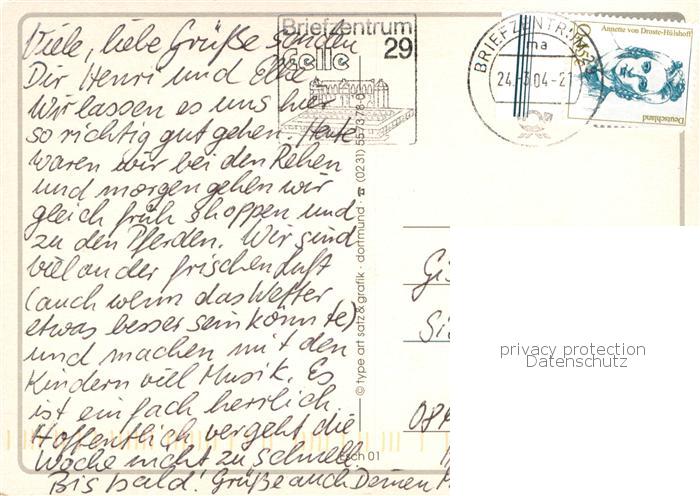 Viele, liebe Grüße senden
Dir Henri und Elke
Wir lassen es uns hier
so richtig gut gehen. Heute
waren wir bei den Rehen
und morgen gehen wir
gleich früh shoppen und
zu den Pferden. Wir sind
viel an der frischen Luft
(auch wenn das Wetter
etwas besser sein könnte)
und machen mit den
Kindern viel Musik. Es
ist einfach herrlich.
Hoffentlich vergeht die
Woche nicht zu schnell.
Bis bald! Grüße auch Deinen
Briefzentrum
29
Celle
BRIEFZENTRUM 29
ma
24. 3.04-21
Annette von Droste-Hülshoff
Deutschland
© type art satz & grafik · dortmund · ☎ (0231) 557378-0
Esch 01
Gi
Si
084
privacy protection
Datenschutz